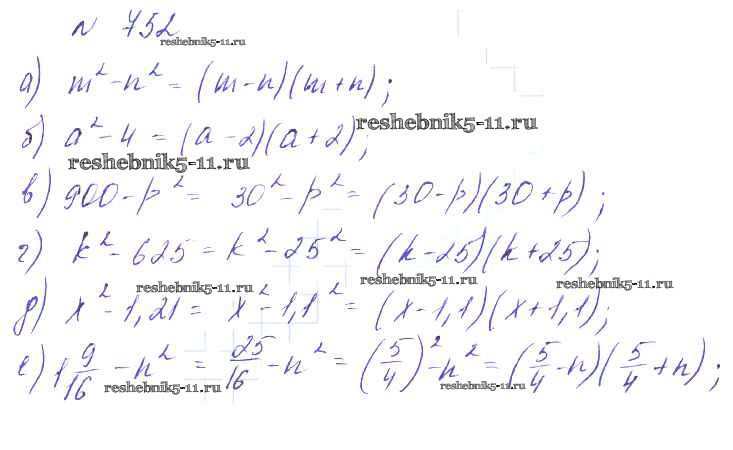 № 752
reshebnik5-11.ru
а) m² - n² = (m - n)(m + n);
б) a² - 4 = (a - 2)(a + 2);
reshebnik5-11.ru
reshebnik5-11.ru
в) 900 - p² = 30² - p² = (30 - p)(30 + p);
г) k² - 625 = k² - 25² = (k - 25)(k + 25);
reshebnik5-11.ru reshebnik5-11.ru reshebnik5-11.ru
д) x² - 1,21 = x² - 1,1² = (x - 1,1)(x + 1,1);
е) 1 9/16 - n² = 25/16 - n² = (5/4)² - n² = (5/4 - n)(5/4 + n);
reshebnik5-11.ru reshebnik5-11.ru